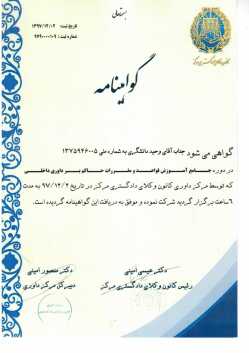 بسمه تعالی
تاریخ ثبت: ۱۳۹۷/۱۲/۱۲
شماره ثبت:
گواهینامه
گواهی می شود جناب آقای وحید دانشگری به شماره ملی ۱۳۷۵۹۴۶۰۰۵
در دوره جامع آموزش قواعد و مقررات حاکم بر داوری داخلی
که توسط مرکز داوری کانون وکلای دادگستری مرکز در تاریخ ۹۷/۱۲/۲ به مدت
۶ ساعت برگزار گردید شرکت نموده و موفق به دریافت این گواهینامه گردیده است.
دکتر عیسی امینی
رئیس کانون وکلای دادگستری مرکز
دکتر منصور امینی
دبیر کل مرکز داوری